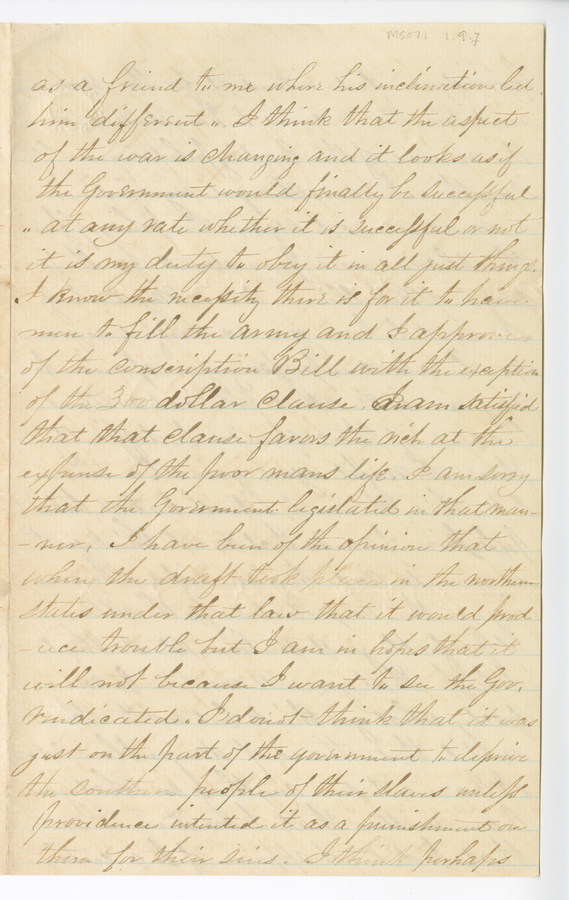 MS071 1.9.7
as a friend to me where his inclination led
him different „ I think that the aspect
of the war is changing and it looks as if
the Government would finally be successful
„ at any rate whether it is successful or not
it is my duty to obey it in all just things.
I know the necessity there is for it to have
men to fill the army and I approve
of the conscription Bill with the exception
of the 300 dollar clause. I am satisfied
that that clause favors the rich at the
expense of the poor mans life. I am sorry
that the Government legislated in that man-
-ner, I have been of the opinion that
when the draft took place in the northern
states under that law that it would prod
-uce trouble but I am in hopes that it
will not because I want to see the Gov.
vindicated. I do not think that it was
just on the part of the government to deprive
the southern people of their slaves unless
providence intented it as a punishment on
them for their sins. I think perhaps